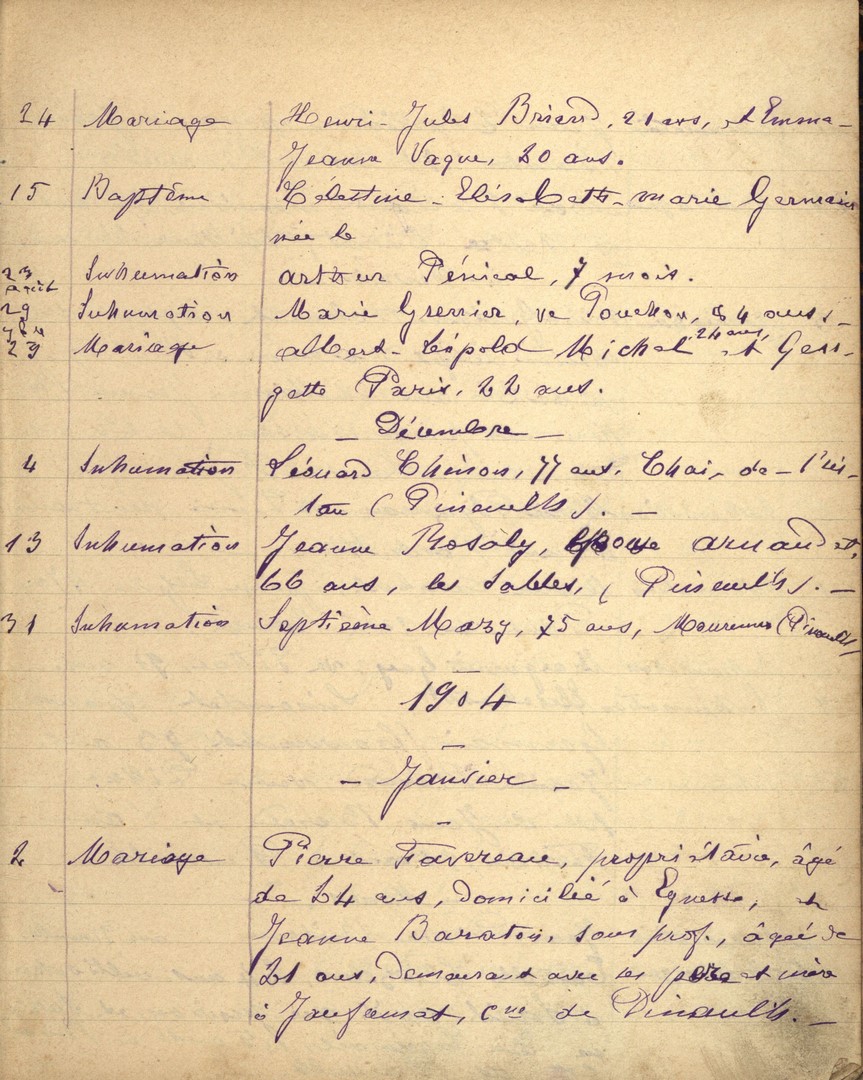 24 Mariage Henri-Jules Briand, 21 ans, et Emma-
Jeanne Vague, 20 ans.
15 Baptême Célestine-Elisabeth-Marie Germain
née le
23 août Inhumation Arthur Pénical, 7 mois.
29 Inhumation Marie Grenier, ve Pouchon, 84 ans.
9bre
29 Mariage Albert-Léopold Michel 24 ans, et Geor-
gette Paris, 22 ans.
- Décembre -
4 Inhumation Léonard Chinon, 77 ans, Chai-de-
(Pinault). -
13 Inhumation Jeanne Rosaly, épouse Arnaudet,
66 ans, les Sables, (Pinault). -
31 Inhumation Septième Mazy, 75 ans, (Pinault)
1904
- Janvier -
2 Mariage Pierre Favereau, propriétaire, âgé
de 24 ans, domicilié à et
Jeanne Baraton, sans prof., âgée de
21 ans, demeurant avec ses père et mère
à cne de Pinault. -